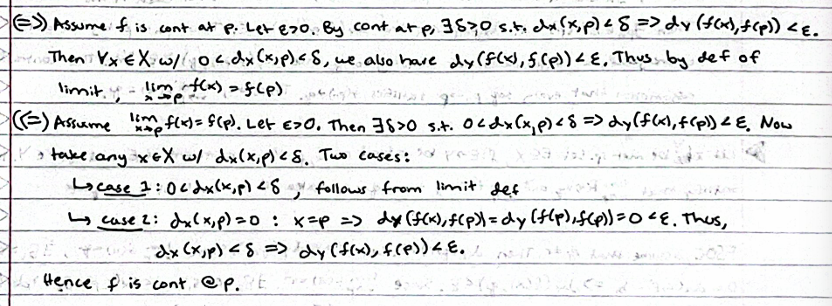 (=>) Assume f is cont at p. Let ε>0. By cont at p, ∃δ>0 s.t. dx(x,p)<δ => dy(f(x),f(p))<ε.
Then ∀x∈X w/ 0<dx(x,p)<δ, we also have dy(f(x),f(p))<ε. Thus, by def of
limit, lim x→p f(x) = f(p)
(<=) Assume lim x→p f(x)=f(p). Let ε>0. Then ∃δ>0 s.t. 0<dx(x,p)<δ => dy(f(x),f(p))<ε. Now
take any x∈X w/ dx(x,p)<δ. Two cases:
↳ case 1: 0<dx(x,p)<δ, follows from limit def
↳ case 2: dx(x,p)=0 : x=p => dy(f(x),f(p))=dy(f(p),f(p))=0<ε. Thus,
dx(x,p)<δ => dy(f(x),f(p))<ε.
Hence f is cont @ p.